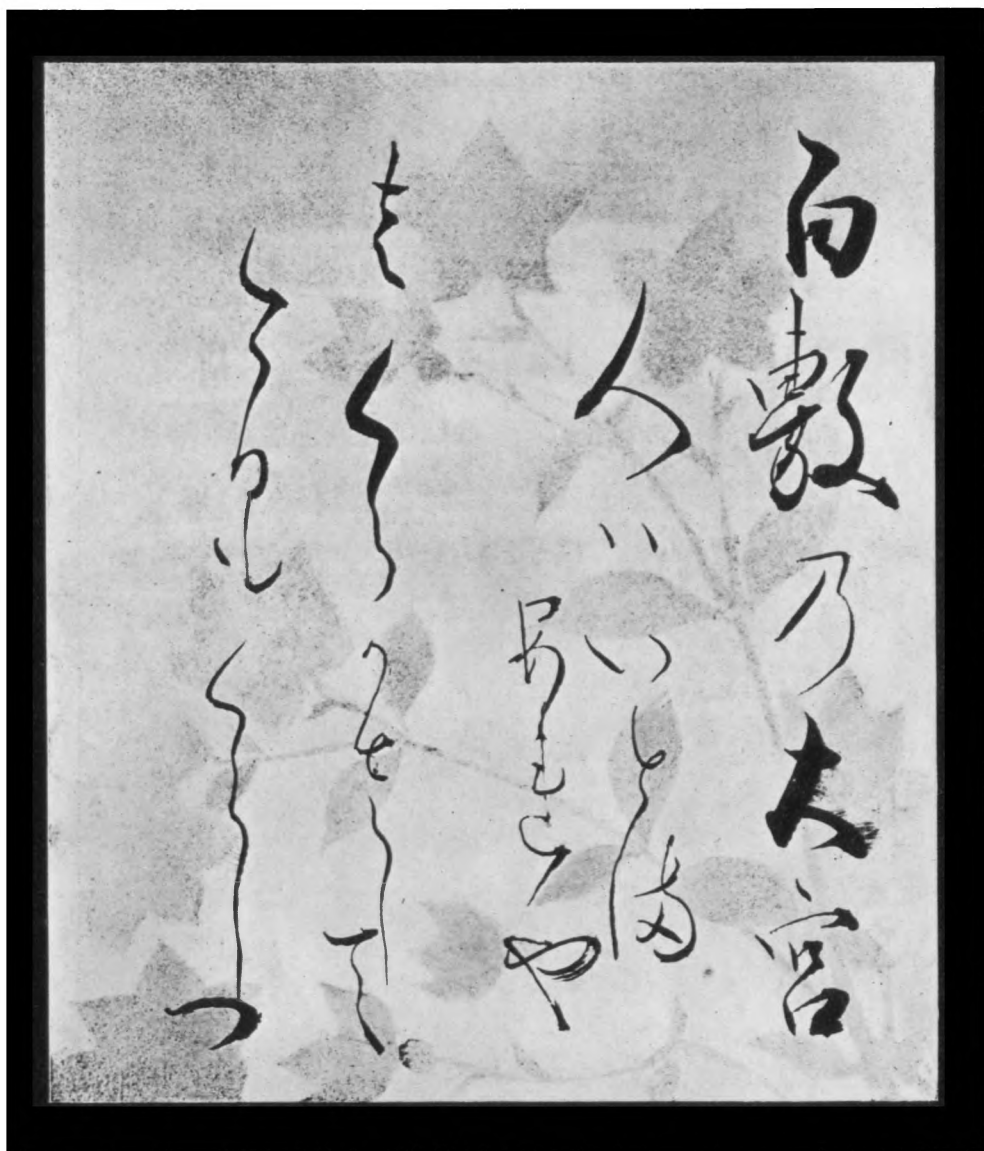 百敷乃大宮
人ハいとま
あれや
さくらかさして
けふもくらしつ